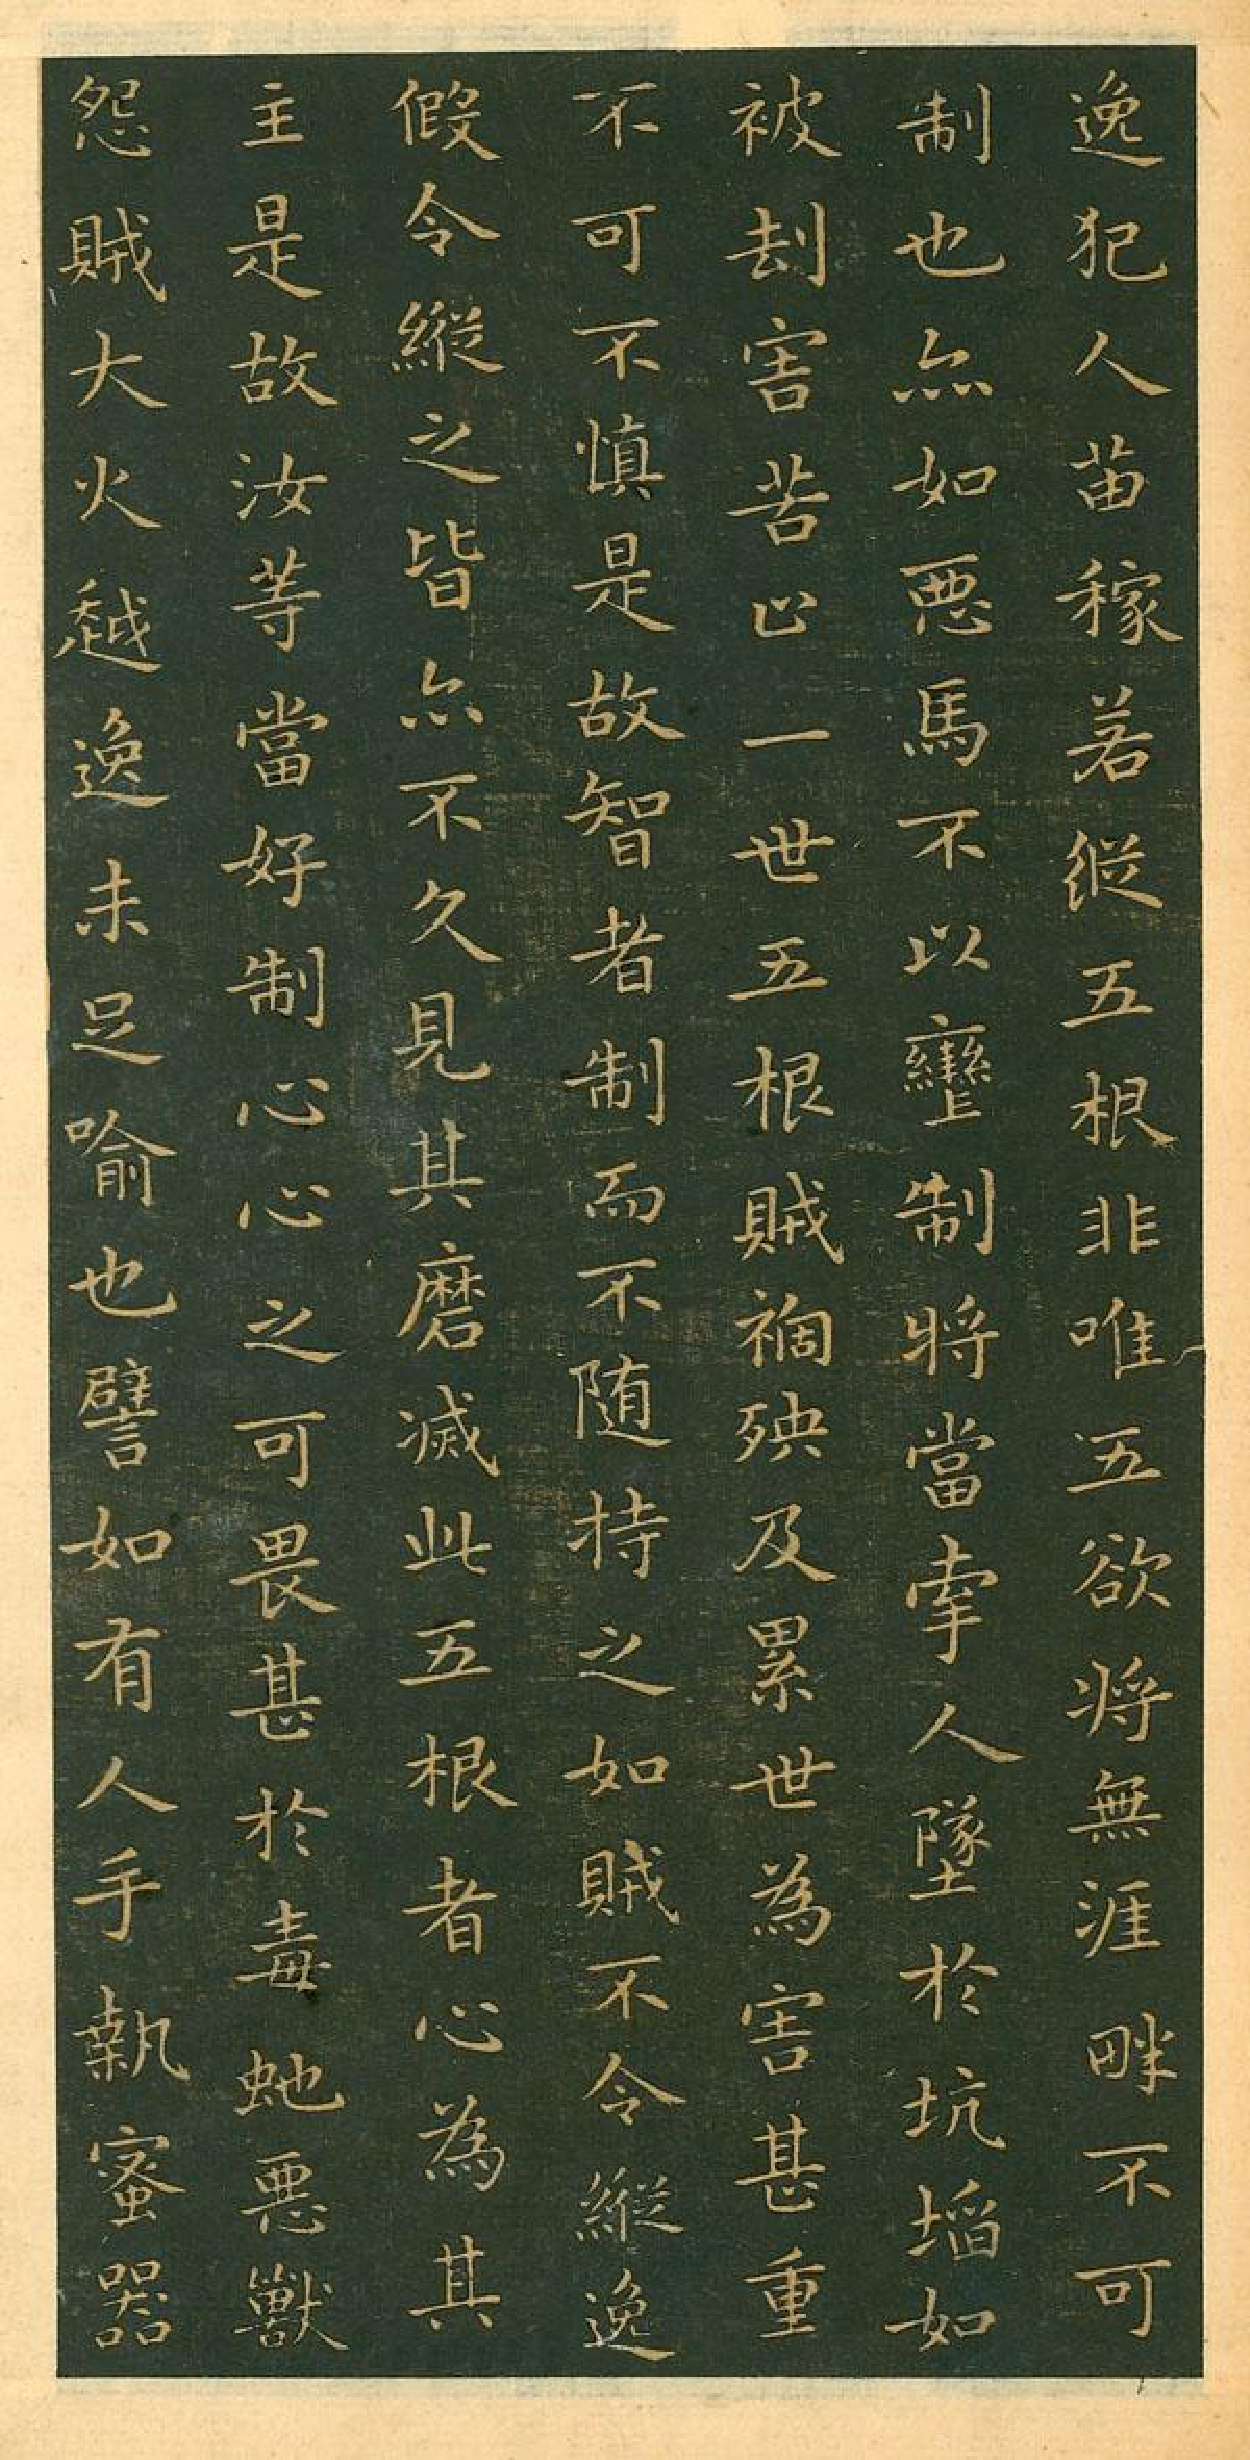 逸犯人苗稼若縱五根非唯五欲將無涯畔不可
制也亦如惡馬不以轡制將當牽人墜於坑埳如
被刼害苦止一世五根賊禍殃及累世為害甚重
不可不慎是故智者制而不随持之如賊不令縱逸
假令縱之皆亦不久見其磨滅此五根者心為其
主是故汝等當好制心心之可畏甚於毒蛇惡獸
怨賊大火越逸未足喻也譬如有人手執蜜器